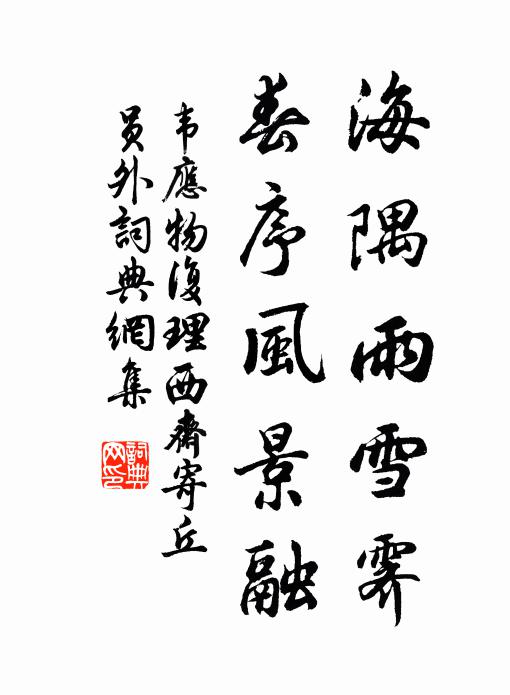 海隅雨雪霽
春序風景融
韦應物復理西齋寄丘
員外詞典網集
詞典网印